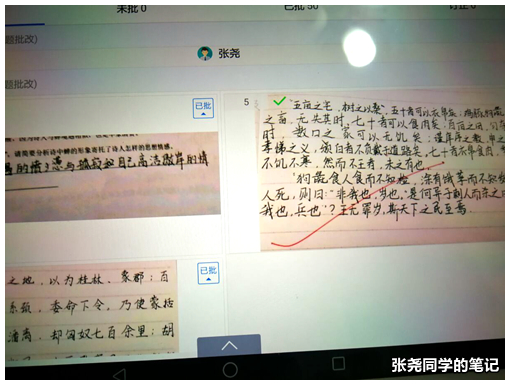 未批 0
已批 50
订正 0
题批改)
张尧
题批改)
已批
请简要分析诗中蝉的形象寄托了诗人怎样的思想感情。
自己高洁
5
五亩之宅，树之以桑，五十者可以衣帛矣；鸡豚狗彘
之畜，无失其时，七十者可以食肉矣；百亩之田，勿夺
时，数口之家可以无饥矣；谨庠序之教，申之
孝悌之义，颁白者不负戴于道路矣。七十者衣帛食肉，
不饥不寒，然而不王者，未之有也。
"狗彘食人食而不知检，涂有饿莩而不知发
人死，则曰："非我也，岁也。"是何异于刺人而杀之曰
我也，兵也"？王无罪岁，斯天下之民至焉
已批
之地，以为桂林、象郡；百
系颈，委命下吏。乃使蒙恬
藩篱，却匈奴七百余里；胡
张尧同学的笔记